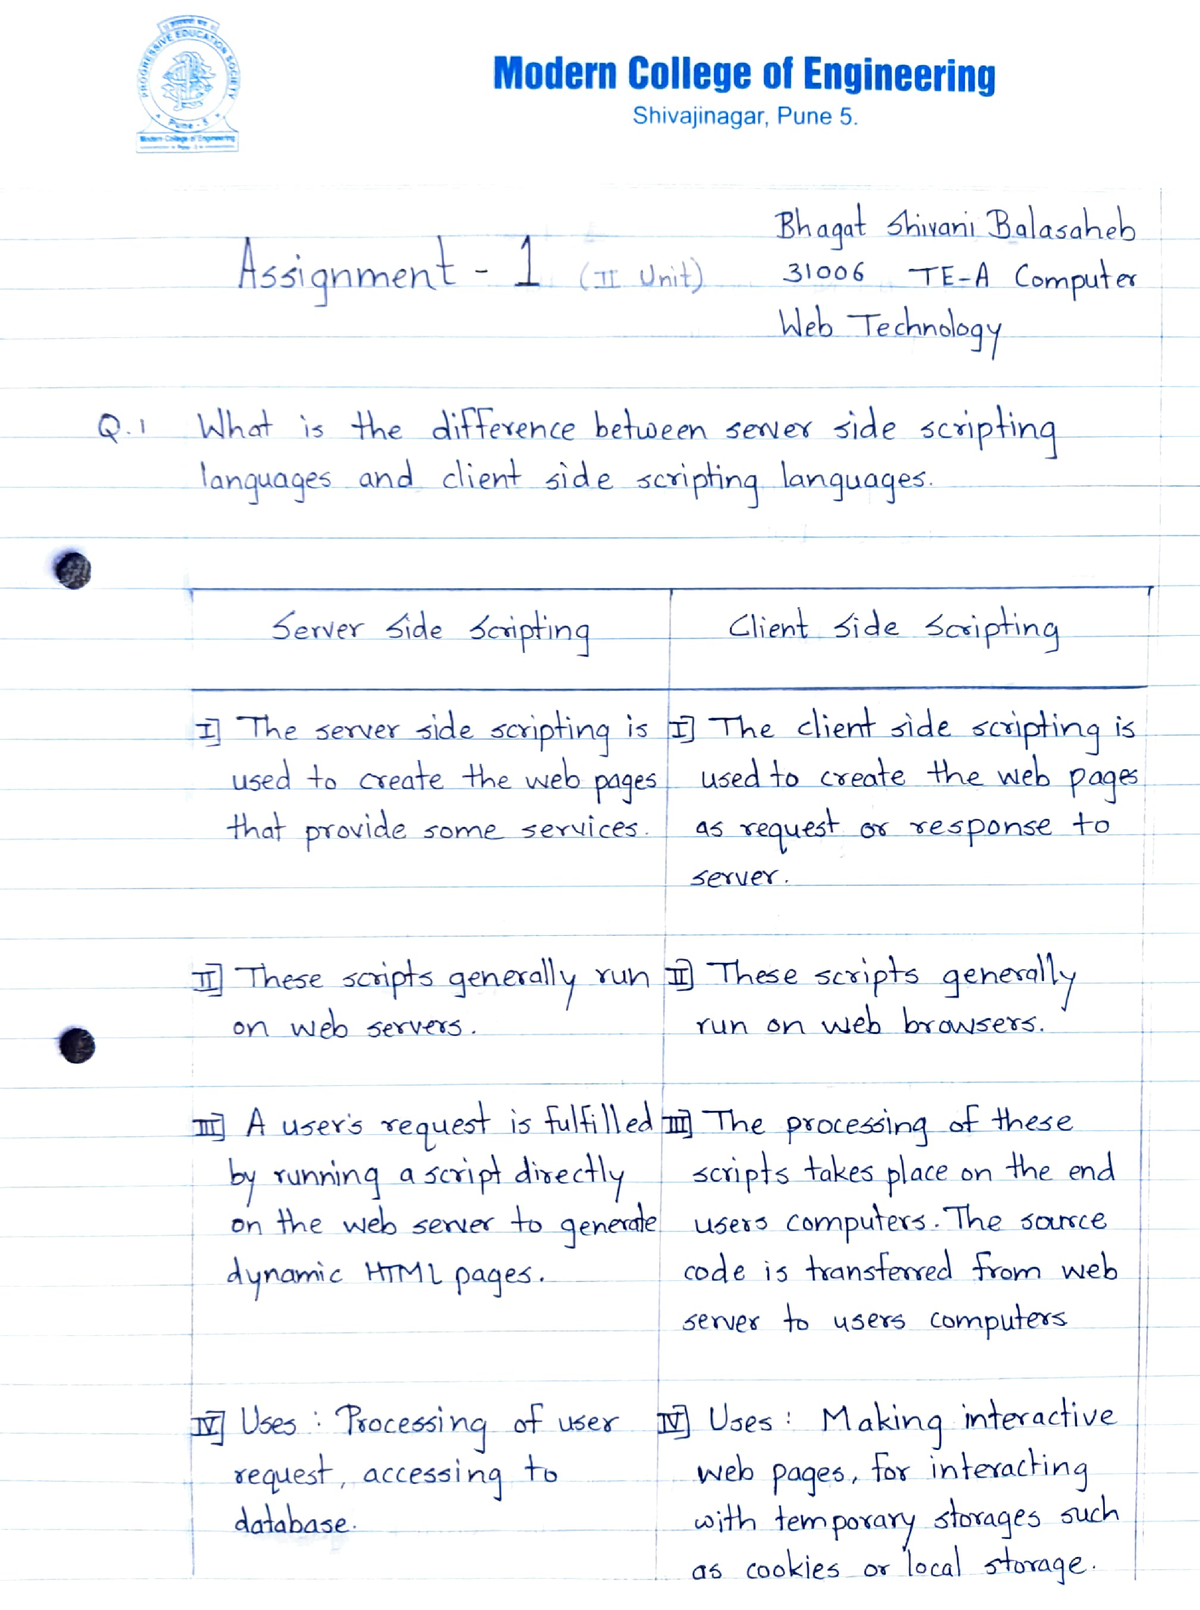 PROGRESSIVE EDUCATION SOCIETY
Pune - 5
Modern College of Engineering
Modern College of Engineering
Shivajinagar, Pune 5.
Bhagat Shivani Balasaheb
Assignment - 1 (II Unit)
31006 TE-A Computer
Web Technology
Q.1 What is the difference between server side scripting
languages and client side scripting languages.
Server Side Scripting
Client Side Scripting
I] The server side scripting is
used to create the web pages
that provide some services.
I] The client side scripting is
used to create the web pages
as request or response to
server.
II] These scripts generally run
on web servers.
II] These scripts generally
run on web browsers.
III] A user's request is fulfilled
by running a script directly
on the web server to generate
dynamic HTML pages.
III] The processing of these
scripts takes place on the end
users computers. The source
code is transferred from web
server to users computers
IV] Uses : Processing of user
request, accessing to
database.
IV] Uses : Making interactive
web pages, for interacting
with temporary storages such
as cookies or local storage.